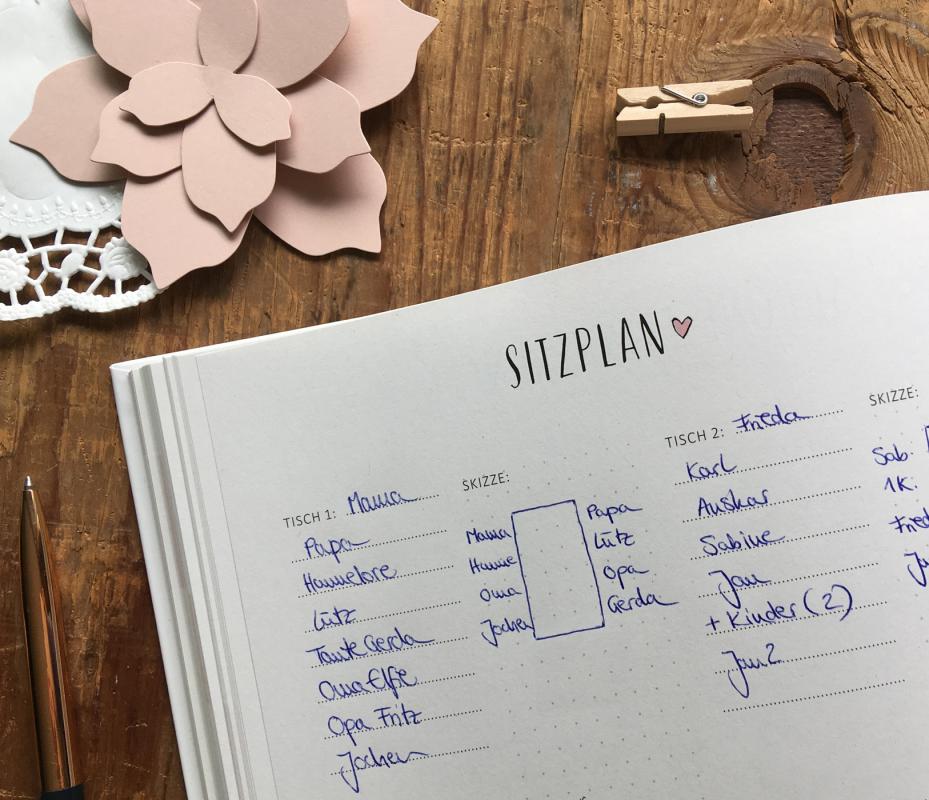 SITZPLAN
TISCH 1: Mama
Papa
Hannelore
Lutz
Tante Gerda
Oma Elfie
Opa Fritz
Jochen
SKIZZE:
Mama
Hannie
Oma
Jochen
Papa
Lutz
Opa
Gerda
TISCH 2: Frieda
Karl
Anskar
Sabine
Jan
+ Kinder (2)
Jan 2
SKIZZE:
Sab.
1K.